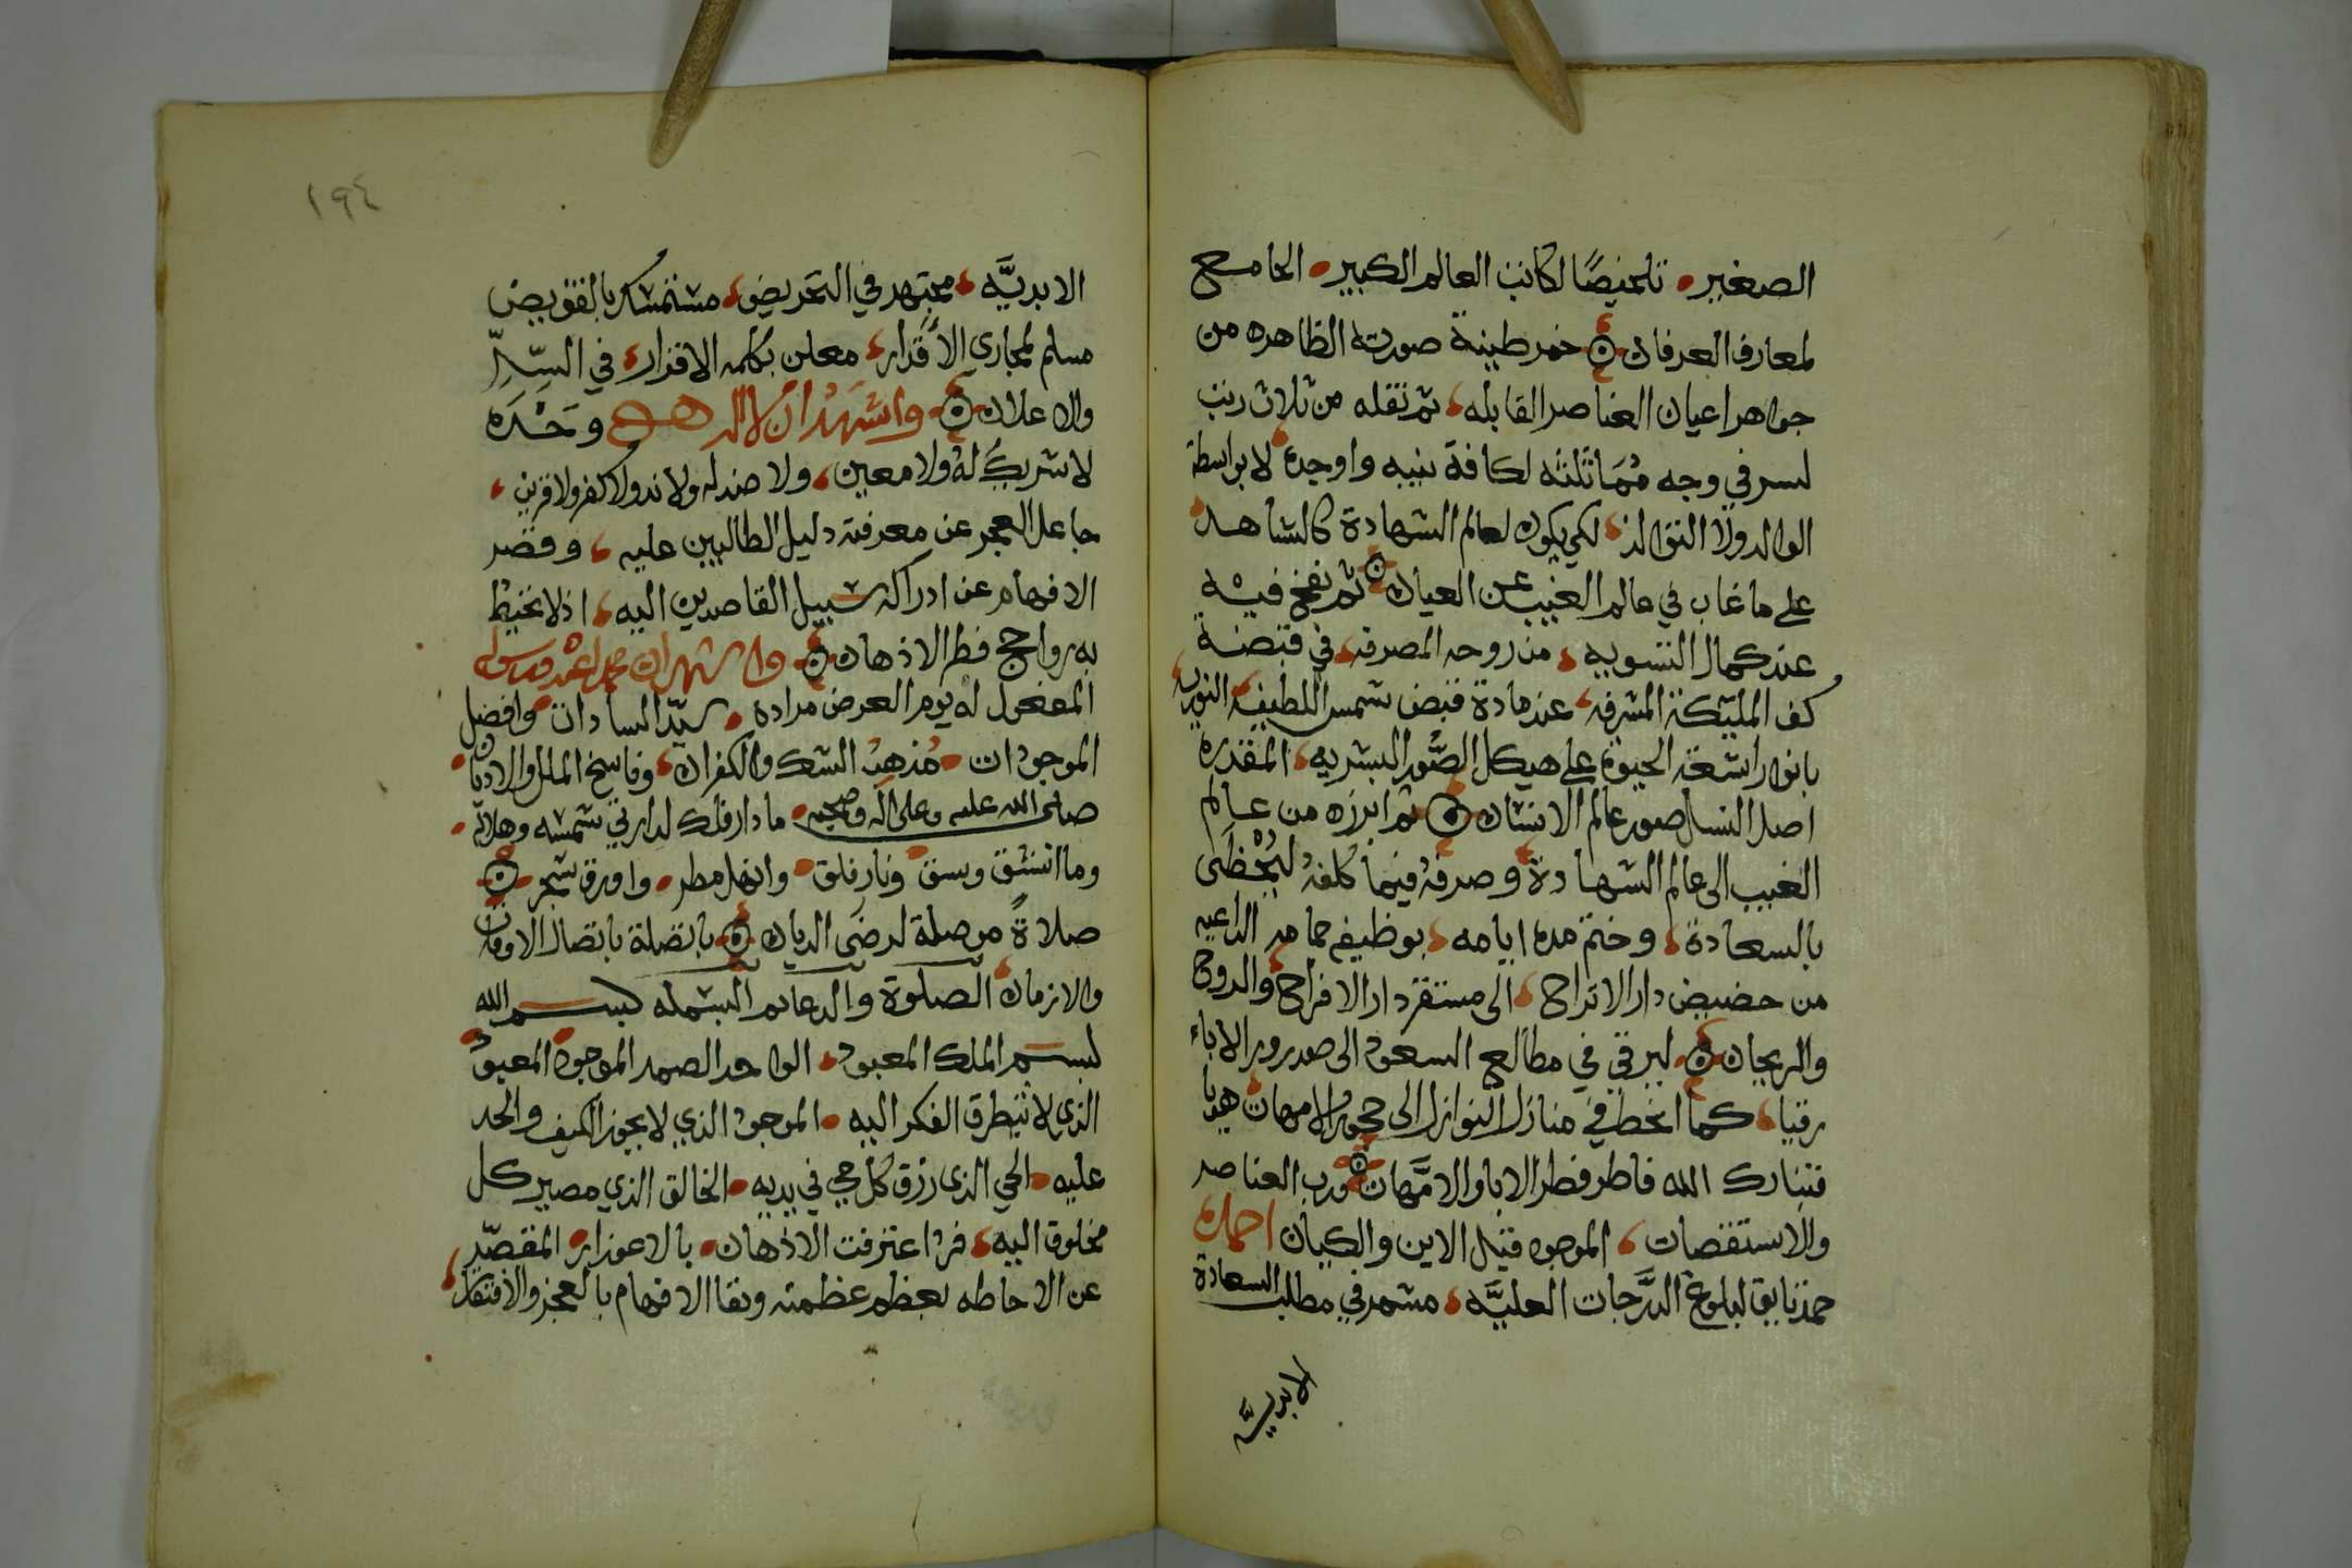 الصغير تلخيصًا لكاتب العالم الكبير الجامع
لمعارف العرفان خمر طينة صورته الظاهره من
جواهر اعيان العناصر القابله ثم نقله من ثلاث رتب
لسر في وجه مماثلته لكافة بنيه واوجده لا بواسطة
الوالد ولا التوالد لكي يكون لعالم الشهادة كالشاهد
على ما غاب في عالم الغيب عن العيان ثم نفخ فيه
عند كمال التسويه من روحه المصرفه في قبضة
كف المليكة المشرفه عند مادة قبض شمس اللطيفه النوريه
بانوار اشعة الحيوة على هيكل الصور البشريه المقدره
اصل النسل صور عالم الانسان ثم ابرزه من عالم
الغيب الى عالم الشهادة وصرفه فيما كلفه ليحظى
بالسعادة وختم مدة ايامه بوظيفه حمامه الداعيه
من حضيض دار الاتراح الى مستقر دار الافراح والروح
والريحان ليرقى في مطالع السعود الى صدرور الاباء
رقيا كما انحط في منازل النوازل الى حجور الامهات هديا
فتبارك الله فاطر فطر الابا والامهات ورب العناصر
والاستقصات الموجود قبل الاين والكيان احمده
حمد تايق لبلوغ الدرجات العليه مشمر في مطلب السعادة
الابديه
١٩٤
الابديه مجتهد في التحريض مستمسك بالتفويض
مسلم لمجاري الاقدار معلن بكلمه الاقرار في السر
والاعلان واشهد ان لا اله وحده
لا شريك له ولا معين ولا ضد له ولا ند ولا كفر ولا قرين
جاعل العجز عن معرفته دليل الطالبين عليه وقصر
الافهام عن ادراكه سبيل القاصدين اليه اذ لا تحيط
به رواجح فطر الاذهان واشهد ان محمدا عبده ورسوله
المفعول له يوم العرض مراده سيد السادات وافضل
الموجودات مذهب الشك والكفران وفاسخ الملل والاديان
صلى الله عليه وعلى اله وصحبه ما دار فلك لدارتي شمسه وهلاله
وما اتسق وسق ونار فلق وانهل مطر واورق شجر
صلاةً موصلة لرضى الديان باتصلة باتصال الاوقات
والازمان الصلوة والدعا ثم البسمله بسم الله
بسم الملك المعبود الواحد الصمد الموجود المعبود
الذي لا يتطرق الفكر اليه الموجود الذي لا يجوز الكيف والحد
عليه الحي الذي رزق كل حي في يديه الخالق الذي مصير كل
مخلوق اليه فرد اعترفت الاذهان بالاعوزار المقصر
عن الاحاطه بعظم عظمته وبقا الافهام بالعجز والافتقار